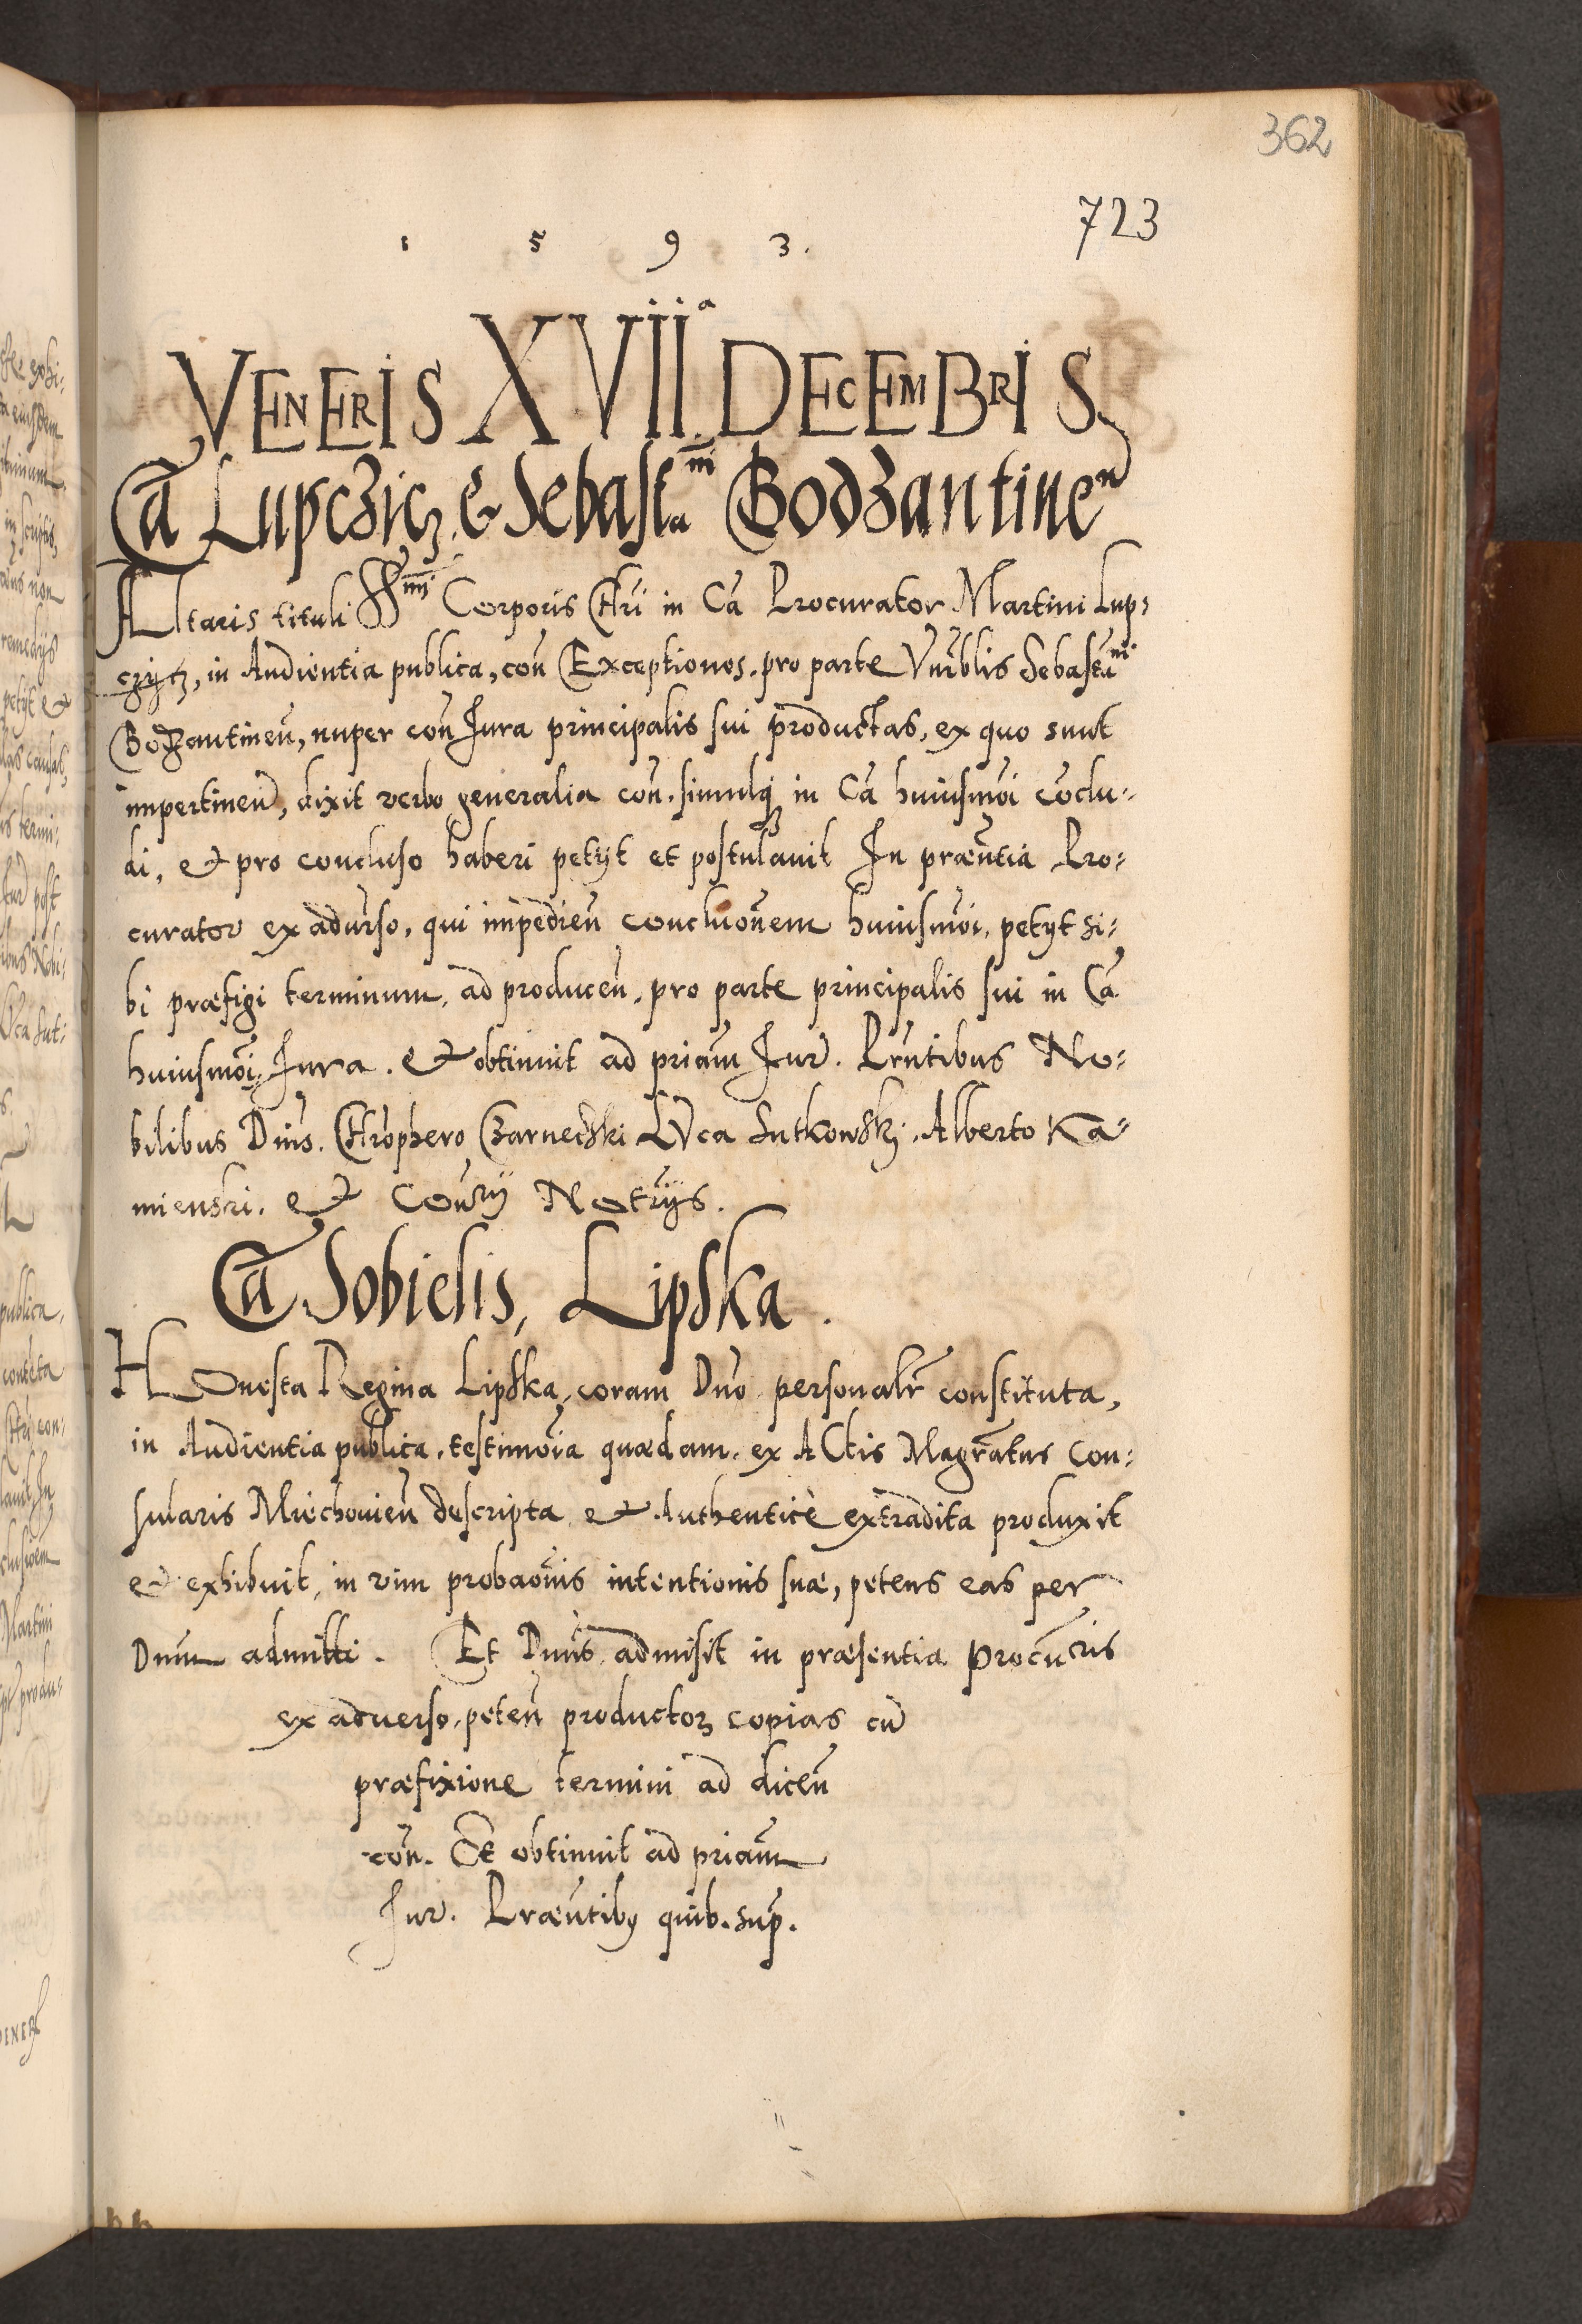 362
723
1 5 9 3.
VENERIS XVII.ª DECEMBRIS
Cã Lupczicz, & Sebastia̅ni Bodzantinen̄
Altaris tituli SS̅mi Corporis Chri̅ in Cã Procurator Martini Lup⸗
czycz, in Audientia publica, con̄ Exceptiones, pro parte Vnr̃blis Sebastia̅ni
Bodzantinen̄, nuper con̄ Jura principalis sui productas, ex quo sunt
impertinen̄, dixit verbo generalia con̄. simulq̨ in Cã huiusmo̅i co̅clu⸗
di, & pro concluso haberi petyt et postulauit In præn̄tia Pro⸗
curator ex adu̅rso, qui impedien̄ conclu̅onem huiusmo̅i, petyt si⸗
bi præfigi terminum, ad producen̄, pro parte principalis sui in Cã
huiusmo̅i Jura. & obtinuit ad pria̅m Jur̃. Pr̃ntibus No⸗
bilibus Dn̅is. Chro̅phero Czarnec3ki LVca Sutkowsky. Alberto Ka⸗
mienski. & Coñry Not̃rijs.
Cã Sobielis, Lipska.
HOnesta Regina Lipska, coram Dn̅o personalr̃ constituta,
in Audientia publica, testimo̅ia quædam, ex ACtis Magr̃atus Con⸗
sularis Miechouien̄ descripta & Authenticè extradita produxit
& exhibuit, in vim probao̅nis intentionis suæ, petens eas per
Dn̅um admitti. Et Dn̅us admisit in præsentia Procũris
ex aduerso, peten̄ productoꝝ copias cu̅
præfixione termini ad dicen̄
con̄. Et obtinuit ad pria̅m
Jur̃. Præn̄tibꝯ quib. sup̃.